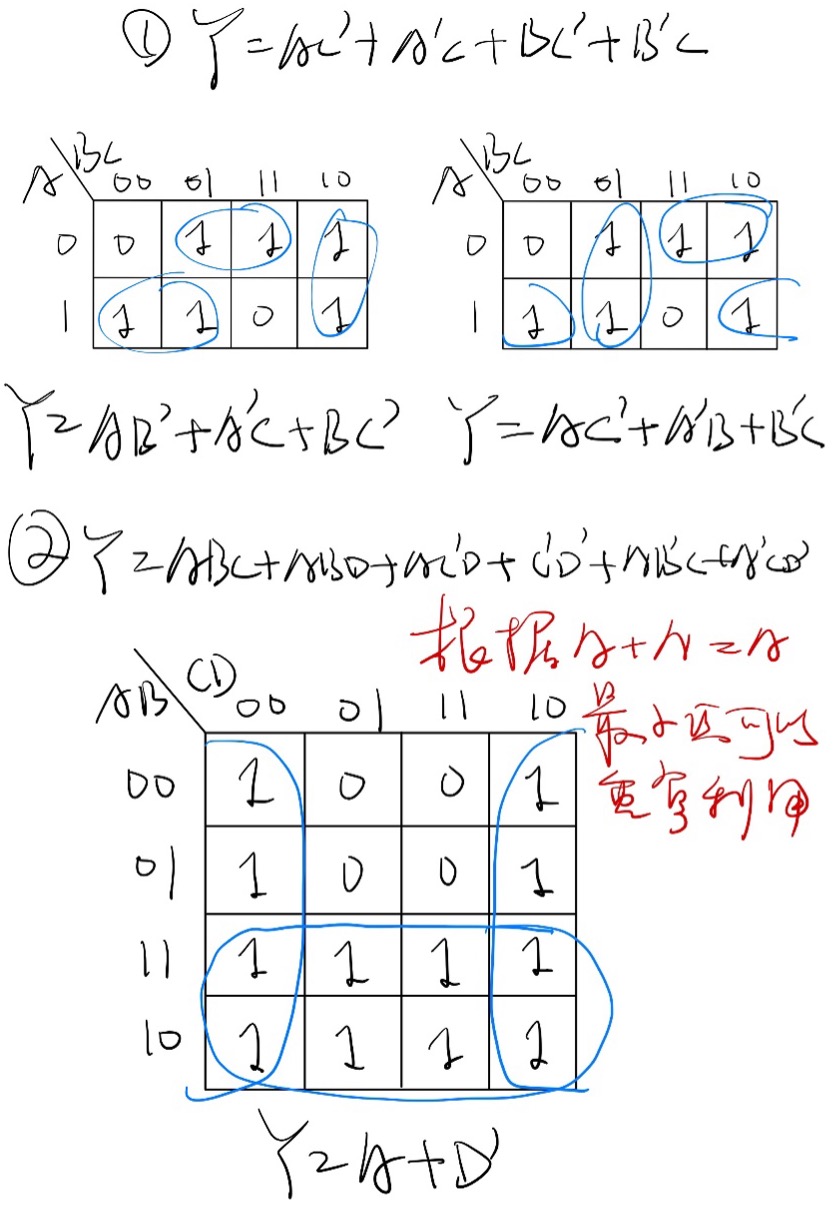 ① Y=AC'+A'C+BC'+B'C
A BC 00 01 11 10
0 0 1 1 1
1 1 1 0 1
Y=AB'+A'C+BC'
A BC 00 01 11 10
0 0 1 1 1
1 1 1 0 1
Y=AC'+A'B+B'C
② Y=ABC+ABD+AC'D+C'D'+AB'C+A'CD'
根据A+A=A
最小项可以
重复利用
AB CD 00 01 11 10
00 1 0 0 1
01 1 0 0 1
11 1 1 1 1
10 1 1 1 1
Y=A+D'